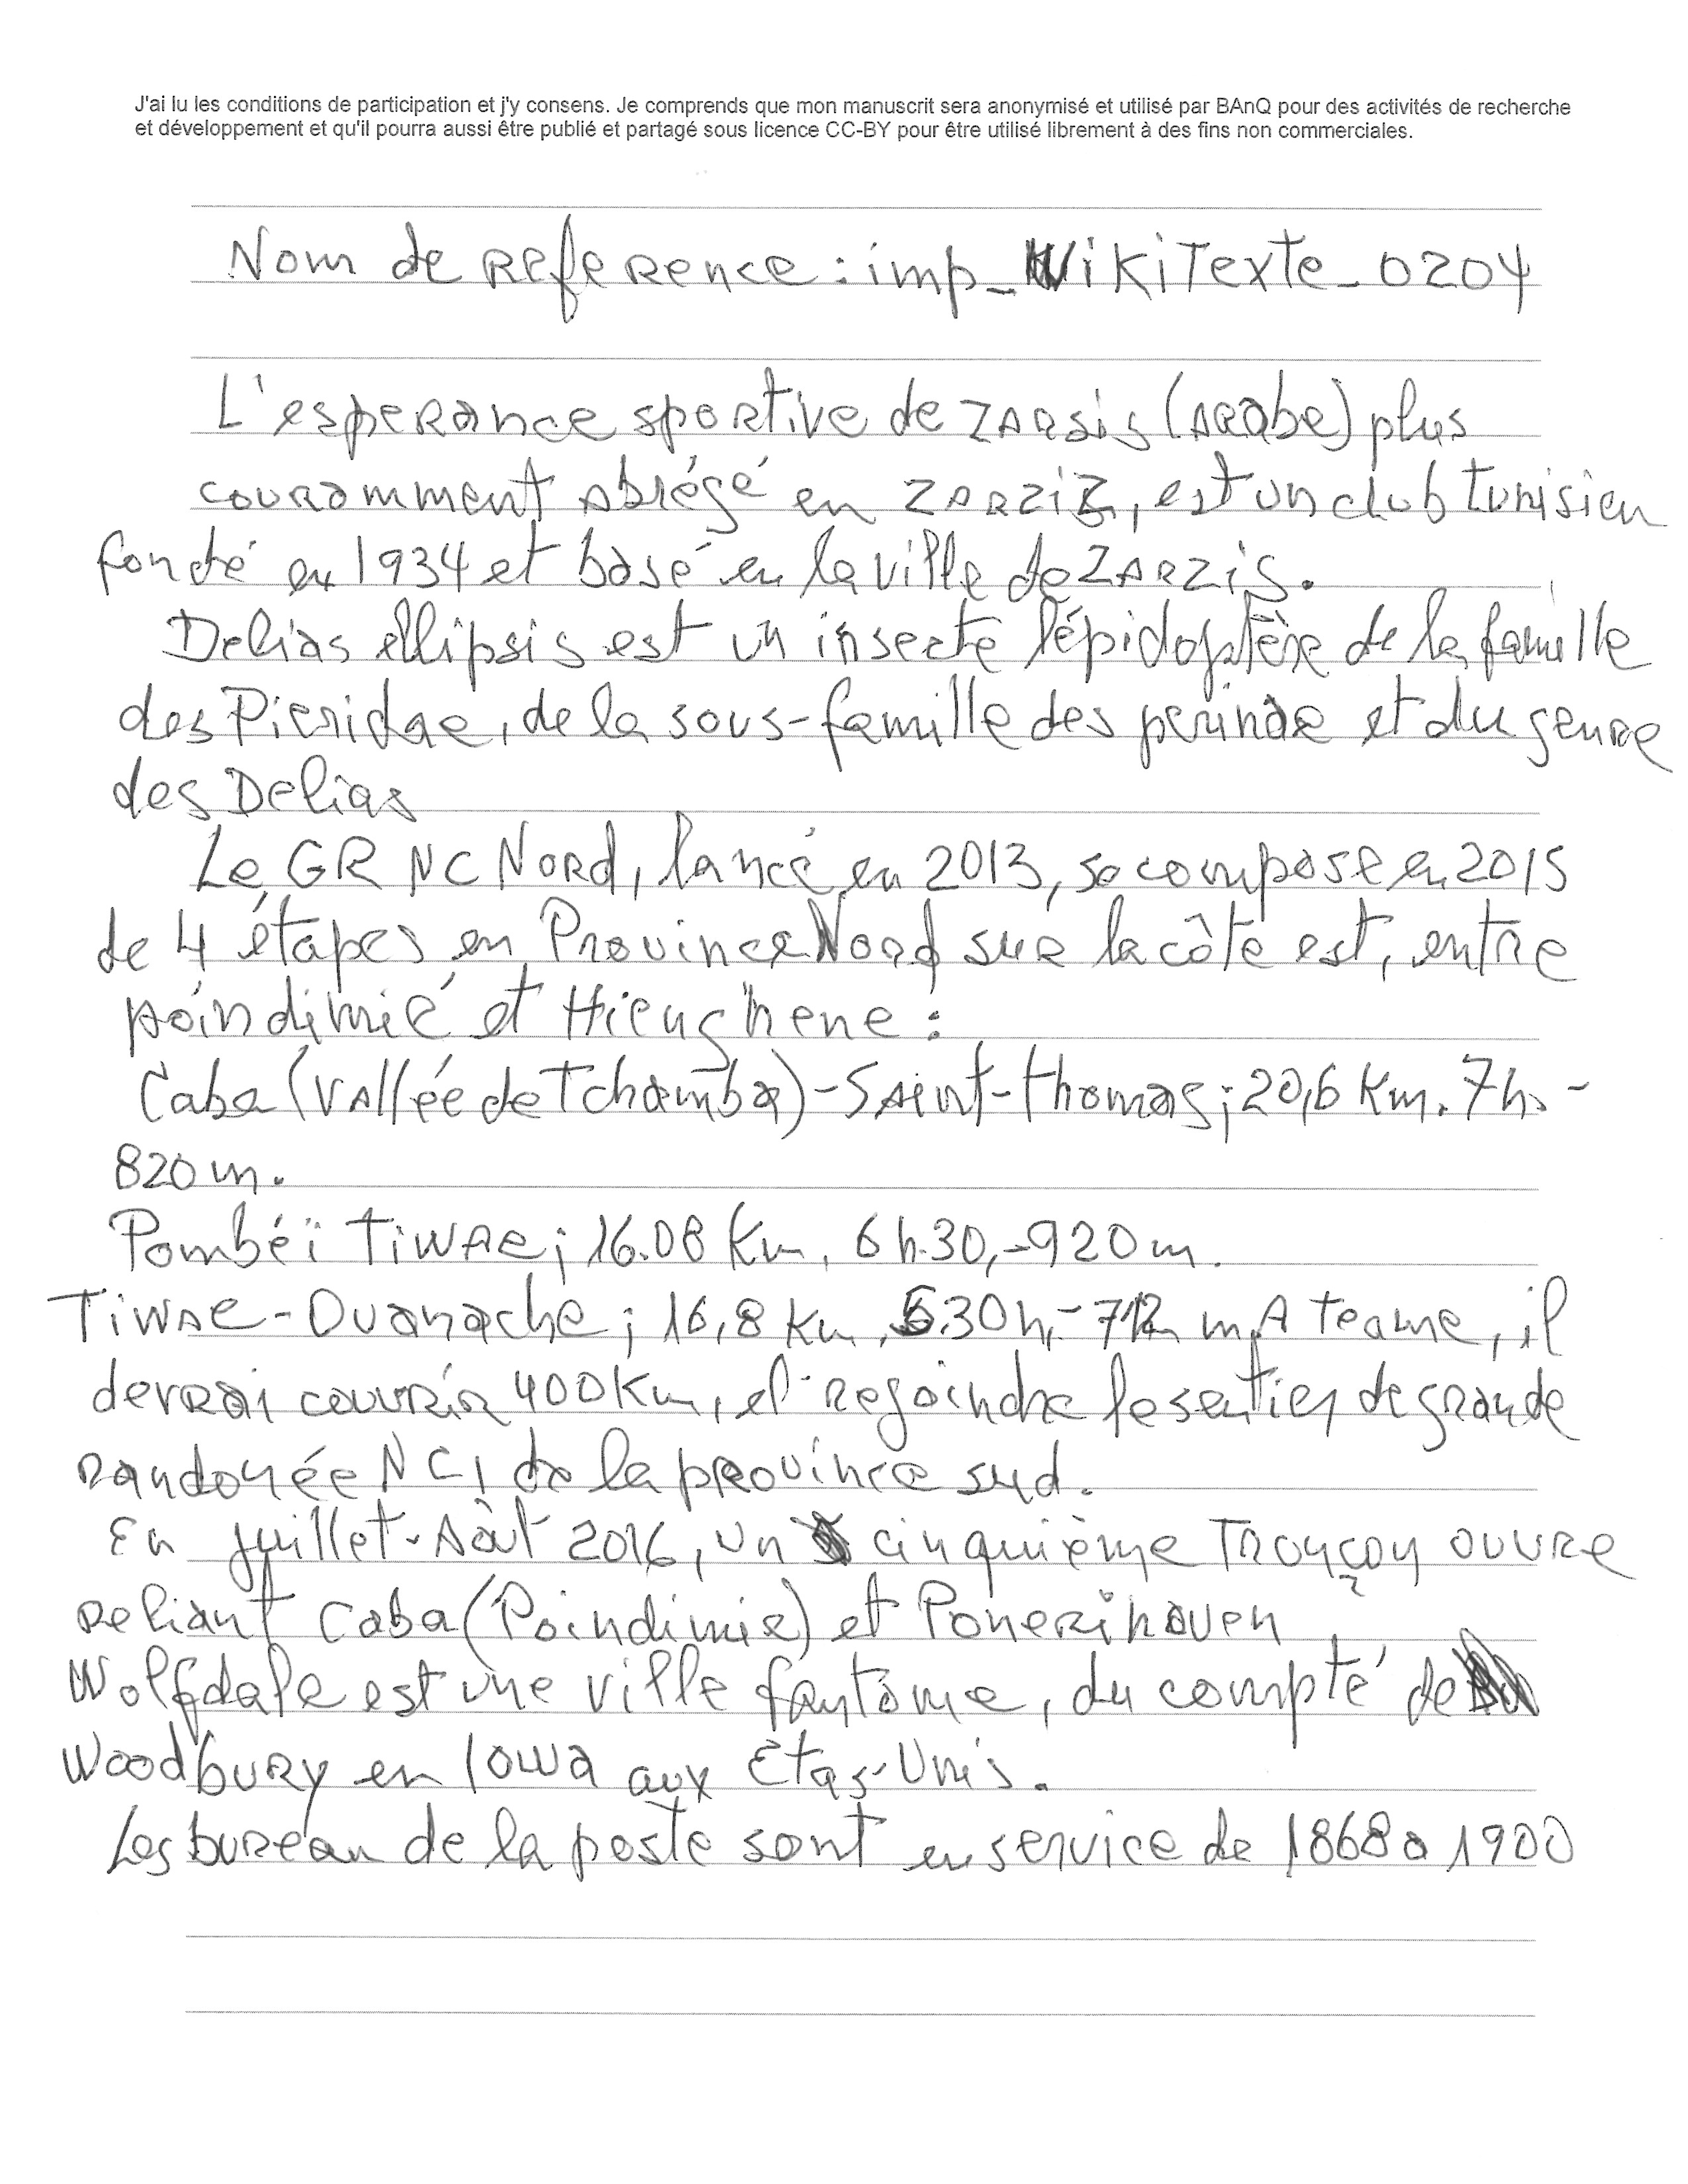 J'ai lu les conditions de participation et j'y consens. Je comprends que mon manuscrit sera anonymisé et utilisé par BAnQ pour des activités de recherche
et développement et qu'il pourra aussi être publié et partagé sous licence CC-BY pour être utilisé librement à des fins non commerciales.
Nom de Reference : imp_WikiTexte_0204
L'esperance sportive de ZARSis (ARabe) plus
couramment Abrégé en ZARZiZ, est un club tunisien
fondé en 1934 et basé en la ville de ZARZiS.
Delias ellipsis est un insecte lépidoptère de la famille
des Pieridae, de la sous-famille des perinae et du genre
des Delias
Le GR NC NORd, lancé en 2013, se compose en 2015
de 4 étapes en Province Nord sur la côte est, entre
poindimié et Hienghene :
Caba (Vallée de Tchamba) - SAint-thomas ; 20,6 Km. 7h. -
820 m.
Pombéï Tiwae ; 16.08 Km, 6 h.30, -920 m.
Tiwae - Ouanache ; 16,8 Km, 5.30 h, - 712 m. A terme, il
devrai couvrir 400 Km, et rejoindre le sentier de grande
randonée NC1 de la province sud.
En juillet-Aôut 2016, un cinquième Tronçon ouvre
reliant Caba (Poindimie) et Ponerihouen
Wolfdale est une ville fantôme, du compté de
Woodbury en Iowa aux Etas-Unis.
Les bureau de la poste sont en service de 1868 a 1900